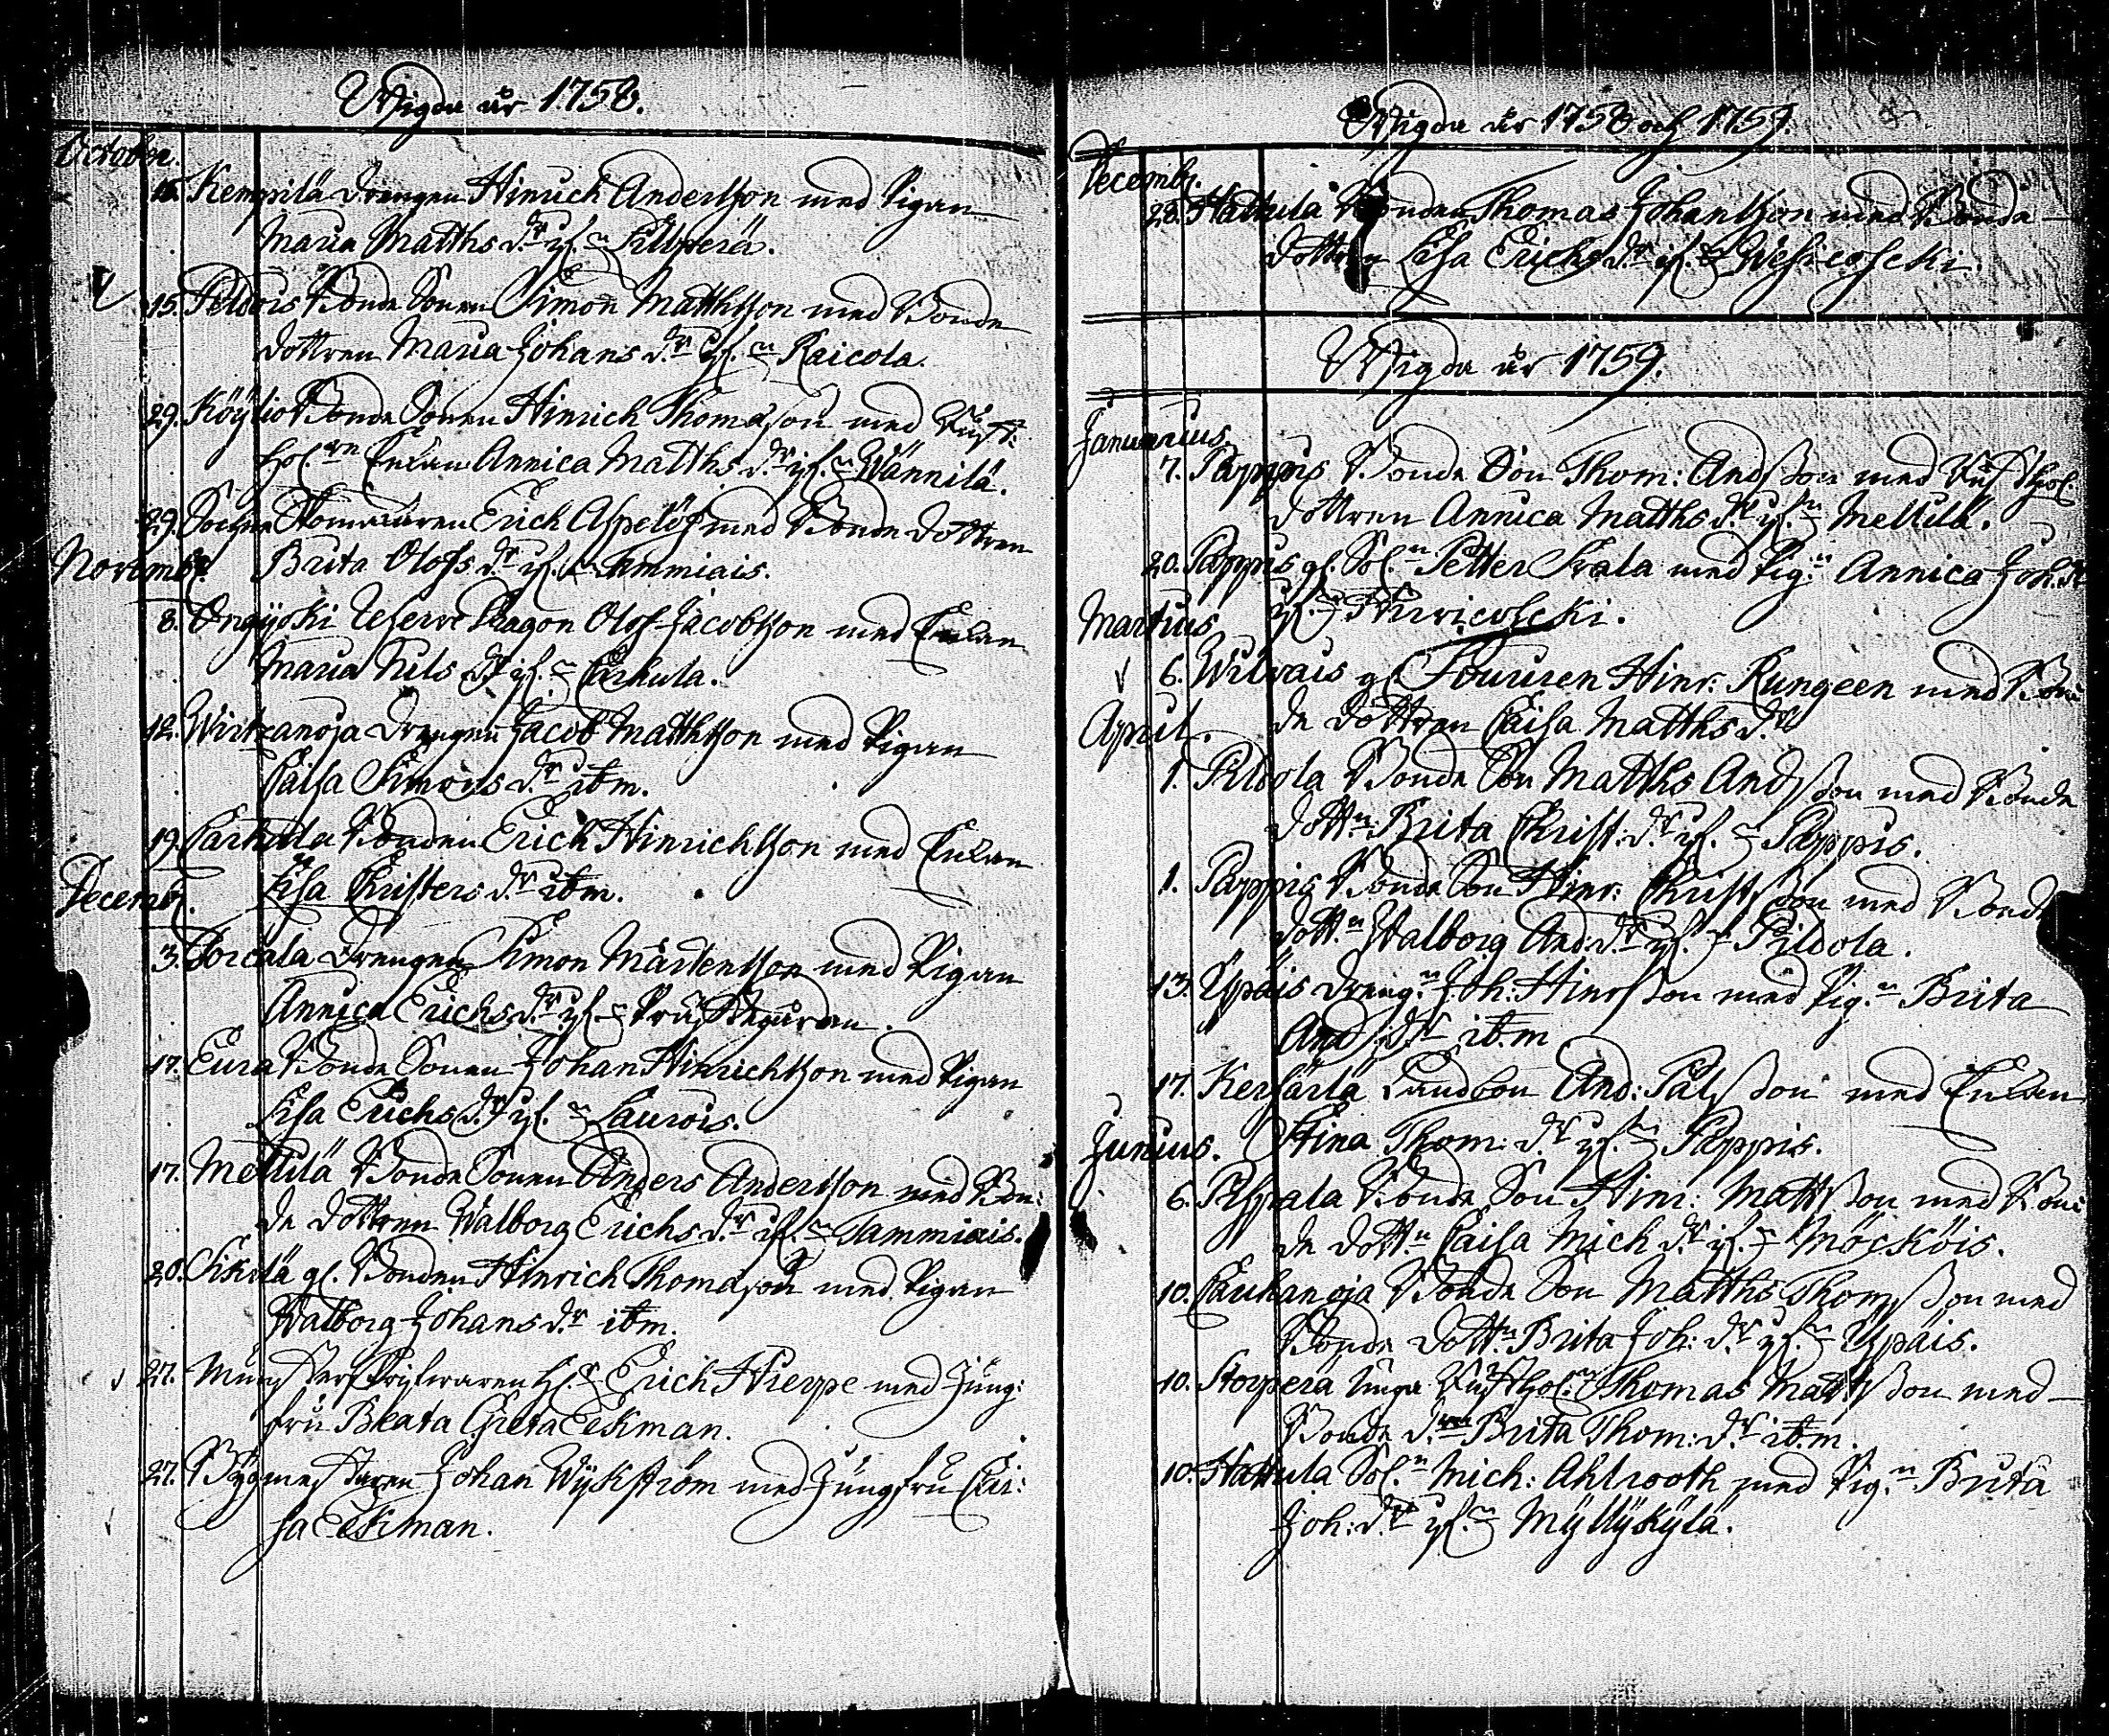 Wigde år 1758.
Octobr.
15. Kempilä Drengen Hinrich Andersson med Pigan
Maria Matths dr if. n
15. Peldois Bonde Sonen Simon Matthsson med Bonde
dottren Maria Johans dr if. n Raicola.
29. Köyliö Bonde Sonen Hinrich Thomasson med Rust:
hol. Enkan Annica Matths dr if. n Wännilä.
29. Sockne Skomakaren Erich Aspelöf med Bonde dottren
Novembr. Brita Olofs dr if. n Tammiais.
8. Reserve Dragon Olof Jacobsson med Enkan
Maria Nils dr if. n Carhula.
12. Wirtzanoja Drengen Jacob Matthsson med Pigan
Caisa Simons dr ibm.
19. Carhula Bonden Erich Hinrichsson med Enkan
Decembr. Lisa Christers dr ibm.
3. Sorcala Drengen Simon Mårtensson med Pigan
Annica Erichs dr if. n Prästegården.
17. Eura Bonde Sonen Johan Hinrichsson med Pigan
Lisa Erichs dr if. n Laurois.
17. Mellilä Bonde Sonen Anders Andersson med Bon:
de dottren Walborg Erichs dr if. n Tammiais.
20. Sikilä gl. Bonden Hinrich Thomasson med Pigan
Walborg Johans dr ibm.
27. Erich Hierpe med Jung:
fru Beata Greta Ekman.
27. Byggmestaren Johan Wykström med Jungfru Cai:
sa Ekman.
Wigde år 1758 och 1759.
Decembr.
28. Hattula Bonden Thomas Johansson med Bonde
dottren Lisa Erichs dr if. n Wesicoscki.
Wigde år 1759.
Januarius
7. Pappis Bonde Son Thom: Andsson med Rusthol.
dottren Annica Matths dr if. n Mellilä.
20. Pappis gl. Sol. n Petter Trala med Pig. n Annica Joh. dr
Martius if. n
6. Wilvais gl. Hinr. Rungeen med Bon:
April. de dottren Caisa Matths dr
1. Pildola Bonde Son Matths Andsson med Bonde
dott. n Brita Christ: dr if. n Pappis.
1. Pappis Bonde Son Hinr. Christsson med Bonde
dott. n Walborg And. dr if. n Pildola.
13. Ypäis Dreng. n Joh: Hinrsson med Pig. n Brita
And. dr ibm
17. Kersärlä Landbon And: Pålsson med Enkan
Junius. Stina Thom: dr if. n Pappis.
6. Pispala Bonde Son Hinr: Mattsson med Bon:
de dott. n Caisa Mich dr if. n Möcköis.
10. Cauhanoja Bonde Son Matths Thomsson med
Bonde dott. n Brita Joh: dr if. n Ypäis.
10. Storperä unge Rusthol. n Thomas Mattsson med
Bonde d. Brita Thom: dr ibm.
10. Hattula Sol. n Mich: Ahlrooth med Pig. n Brita
Joh: dr if. n Myllykylä.